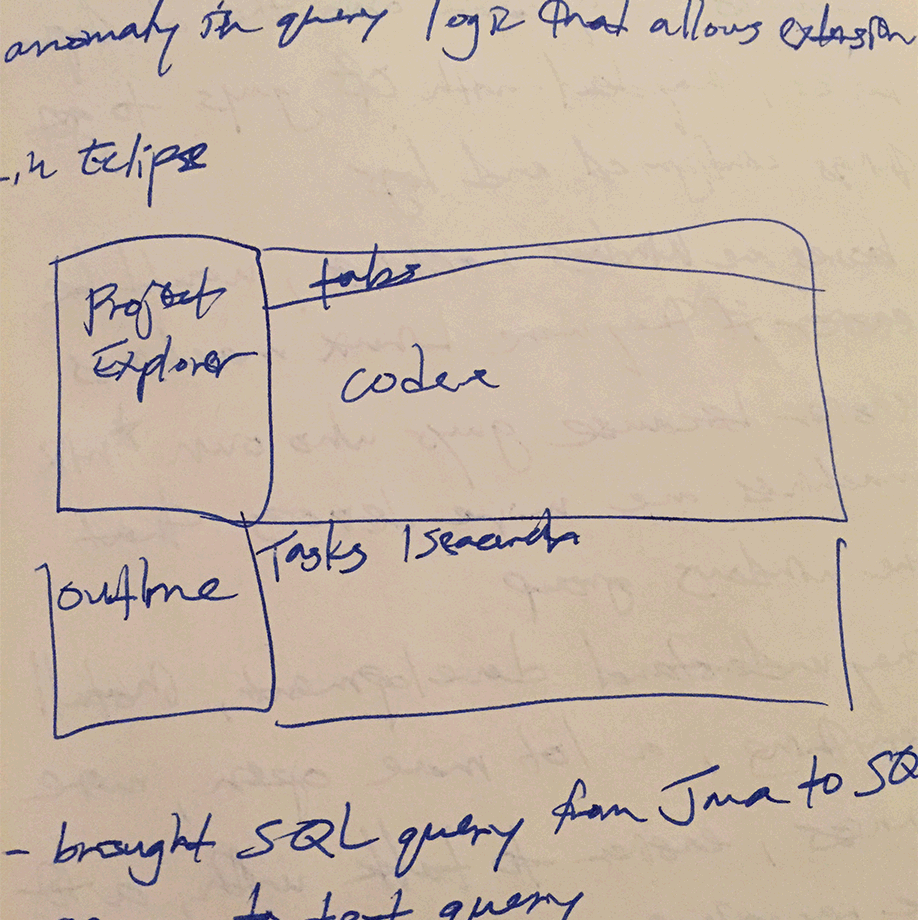 anomaly in query logic that allows extension
- in Eclipse
tabs
Project
Explorer
code
Tasks | Search
outline
- brought SQL query from Java to SQ
to test query